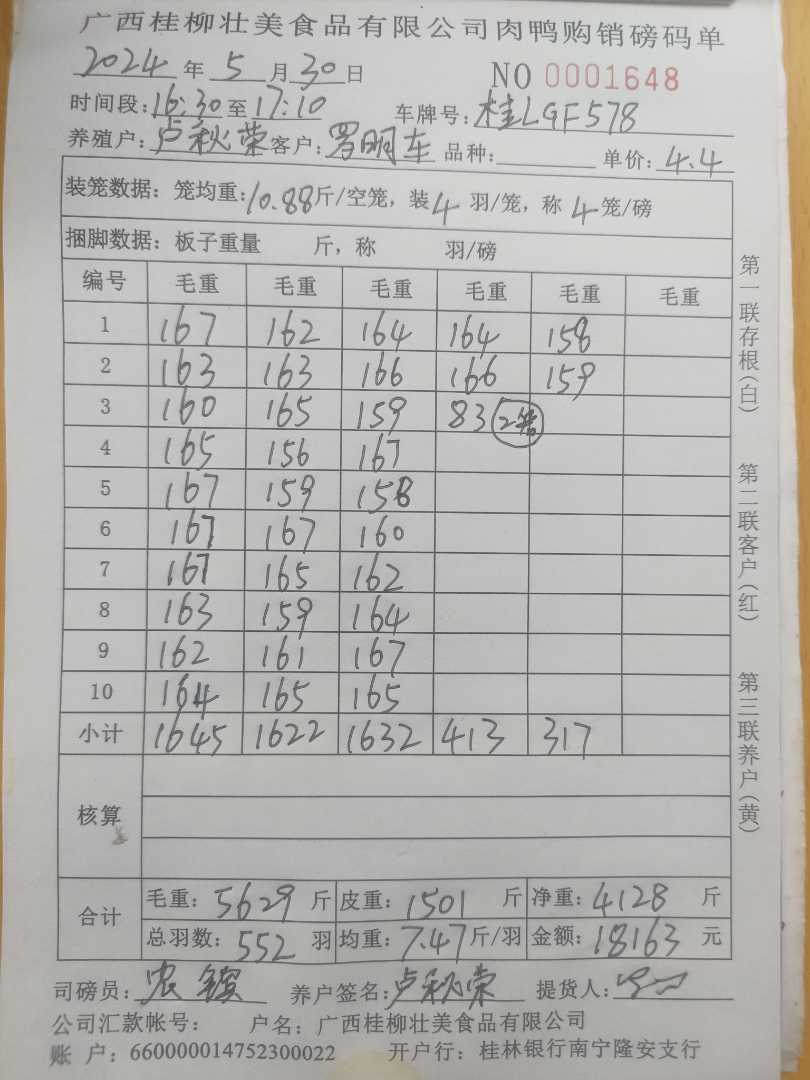 广西桂柳壮美食品有限公司肉鸭购销磅码单
2024年 5 月 30 日 NO 0001648
时间段:16:30至17:10 车牌号:桂LGF578
养殖户:卢秋荣 客户:罗明车 品种: 单价:4.4
装笼数据: 笼均重:10.88斤/空笼, 装 4 羽/笼, 称 4 笼/磅
捆脚数据: 板子重量 斤, 称 羽/磅
编号 毛重 毛重 毛重 毛重 毛重 毛重
1 167 162 164 164 158
2 163 163 166 166 159
3 160 165 159 83 2笼
4 165 156 167
5 167 159 158
6 167 167 160
7 167 165 162
8 163 159 164
9 162 161 167
10 164 165 165
小计 1645 1622 1632 413 317
核算
合计
毛重: 5629 斤 皮重: 1501 斤 净重: 4128 斤
总羽数: 552 羽 均重: 7.47 斤/羽 金额: 18163 元
司磅员: 农 养户签名: 卢秋荣 提货人:
公司汇款帐号: 户名: 广西桂柳壮美食品有限公司
账 户: 660000014752300022 开户行: 桂林银行南宁隆安支行
第一联存根(白)
第二联客户(红)
第三联养户(黄)